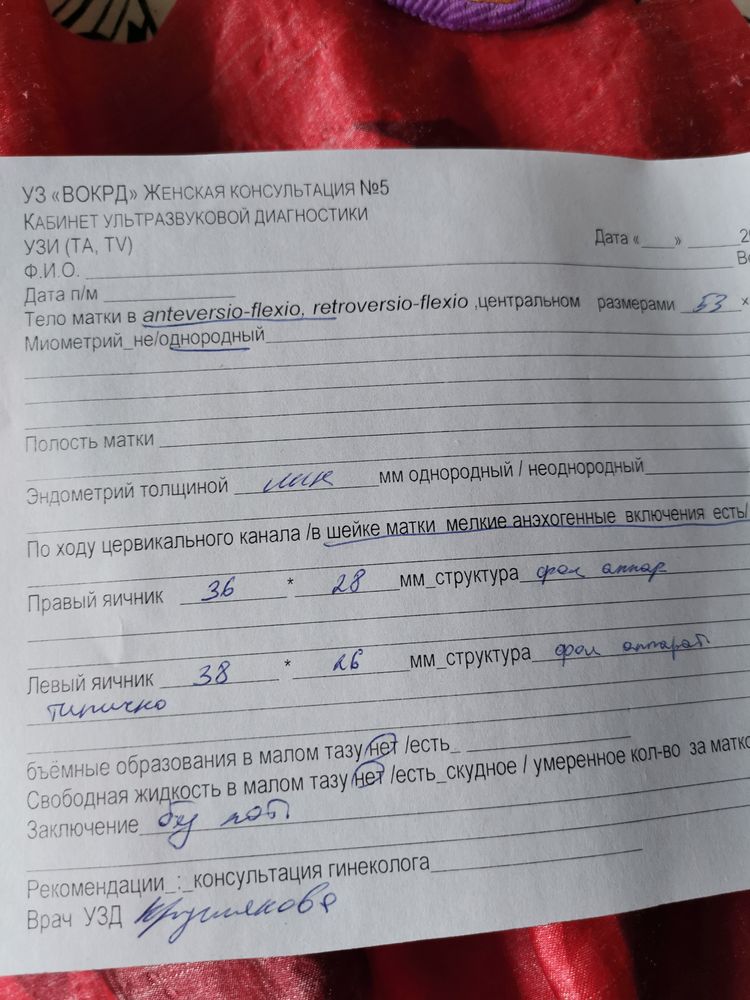 УЗ «ВОКРД» ЖЕНСКАЯ КОНСУЛЬТАЦИЯ №5
КАБИНЕТ УЛЬТРАЗВУКОВОЙ ДИАГНОСТИКИ
УЗИ (ТА, TV)
Дата «____» ______
Ф.И.О.
Дата п/м
Тело матки в anteversio-flexio, retroversio-flexio ,центральном размерами 53 ×
Миометрий_не/однородный
Полость матки
Эндометрий толщиной лин мм однородный / неоднородный
По ходу цервикального канала /в шейке матки мелкие анэхогенные включения есть/
Правый яичник 36 * 28 мм_структура фол аппар
Левый яичник 38 * 26 мм_структура фол аппарат
типично
бъёмные образования в малом тазу нет /есть_
Свободная жидкость в малом тазу нет /есть_скудное / умеренное кол-во за матко
Заключение без пат
Рекомендации_:_консультация гинеколога
Врач УЗД